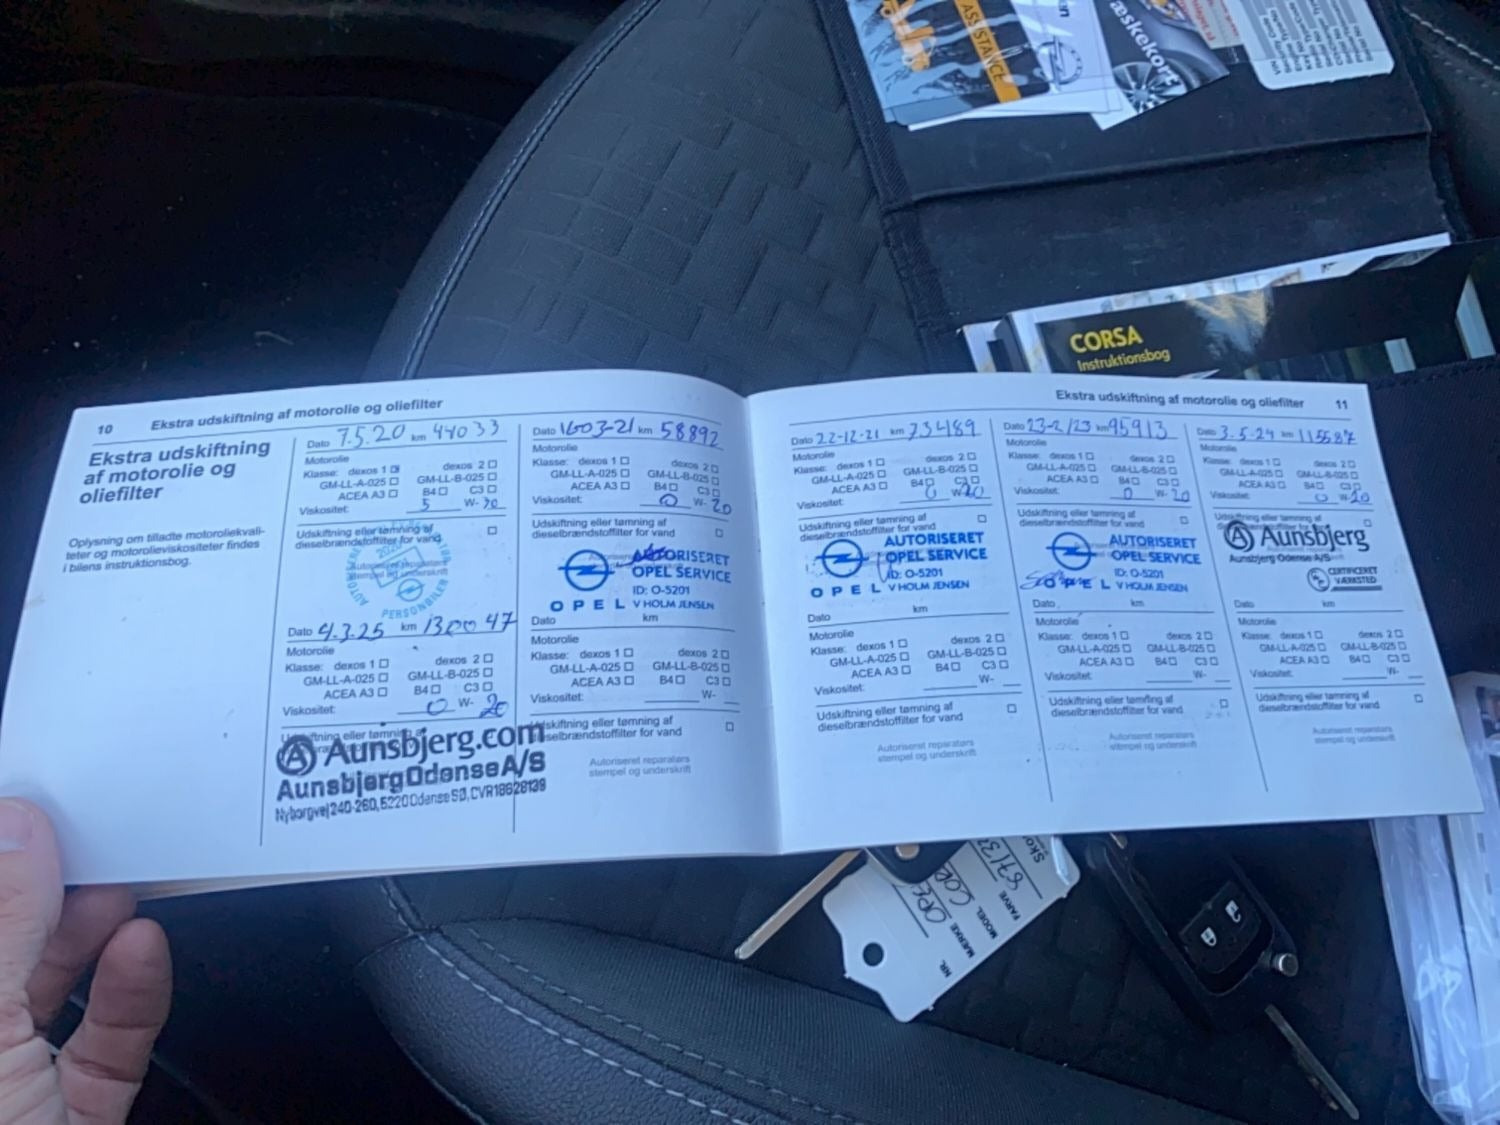 ASSISTANCE
æskekort
CORSA
Instruktionsbog
10 Ekstra udskiftning af motorolie og oliefilter
Ekstra udskiftning
af motorolie og
oliefilter
Oplysning om tilladte motoroliekvali-
teter og motorolieviskositeter findes
i bilens instruktionsbog.
Dato 7.5.20 km 44033
Motorolie
Klasse: dexos 1 ☐ dexos 2 ☐
GM-LL-A-025 ☐ GM-LL-B-025 ☐
ACEA A3 ☐ B4 ☐ C3 ☐
Viskositet: 5 W- 30
Udskiftning eller tømning af
dieselbrændstoffilter for vand ☐
2020
PERSONBILER
Dato 4.3.25 km 130047
Motorolie
Klasse: dexos 1 ☐ dexos 2 ☐
GM-LL-A-025 ☐ GM-LL-B-025 ☐
ACEA A3 ☐ B4 ☐ C3 ☐
Viskositet: 0 W- 20
Aunsbjerg.com
Aunsbjerg Odense A/S
Nyborgvej 240-260, 5220 Odense SØ, CVR18628139
Dato 1603-21 km 58892
Motorolie
Klasse: dexos 1 ☐ dexos 2 ☐
GM-LL-A-025 ☐ GM-LL-B-025 ☐
ACEA A3 ☐ B4 ☐ C3 ☐
Viskositet: 0 W- 20
Udskiftning eller tømning af
dieselbrændstoffilter for vand ☐
AUTORISERET
OPEL SERVICE
ID: O-5201
OPEL V HOLM JENSEN
Dato km
Motorolie
Klasse: dexos 1 ☐ dexos 2 ☐
GM-LL-A-025 ☐ GM-LL-B-025 ☐
ACEA A3 ☐ B4 ☐ C3 ☐
Viskositet: W-
Udskiftning eller tømning af
dieselbrændstoffilter for vand ☐
Autoriseret reparatørs
stempel og underskrift
Ekstra udskiftning af motorolie og oliefilter 11
Dato 22-12-21 km 73489
Motorolie
Klasse: dexos 1 ☐ dexos 2 ☐
GM-LL-A-025 ☐ GM-LL-B-025 ☐
ACEA A3 ☐ B4 ☐ C3 ☐
Viskositet: 0 W- 20
Udskiftning eller tømning af
dieselbrændstoffilter for vand ☐
AUTORISERET
OPEL SERVICE
ID: O-5201
OPEL V HOLM JENSEN
Dato km
Motorolie
Klasse: dexos 1 ☐ dexos 2 ☐
GM-LL-A-025 ☐ GM-LL-B-025 ☐
ACEA A3 ☐ B4 ☐ C3 ☐
Viskositet: W-
Udskiftning eller tømning af
dieselbrændstoffilter for vand ☐
Autoriseret reparatørs
stempel og underskrift
Dato 23-2/23 km 95913
Motorolie
Klasse: dexos 1 ☐ dexos 2 ☐
GM-LL-A-025 ☐ GM-LL-B-025 ☐
ACEA A3 ☐ B4 ☐ C3 ☐
Viskositet: 0 W- 20
Udskiftning eller tømning af
dieselbrændstoffilter for vand ☐
AUTORISERET
OPEL SERVICE
ID: O-5201
OPEL V HOLM JENSEN
Dato km
Motorolie
Klasse: dexos 1 ☐ dexos 2 ☐
GM-LL-A-025 ☐ GM-LL-B-025 ☐
ACEA A3 ☐ B4 ☐ C3 ☐
Viskositet: W-
Udskiftning eller tømning af
dieselbrændstoffilter for vand ☐
Autoriseret reparatørs
stempel og underskrift
Dato 3.5-24 km 115587
Motorolie
Klasse: dexos 1 ☐ dexos 2 ☐
GM-LL-A-025 ☐ GM-LL-B-025 ☐
ACEA A3 ☐ B4 ☐ C3 ☐
Viskositet: 0 W- 20
Udskiftning eller tømning af
Aunsbjerg
Aunsbjerg Odense A/S
CERTIFICERET
VÆRKSTED
Dato km
Motorolie
Klasse: dexos 1 ☐ dexos 2 ☐
GM-LL-A-025 ☐ GM-LL-B-025 ☐
ACEA A3 ☐ B4 ☐ C3 ☐
Viskositet: W-
Udskiftning eller tømning af
dieselbrændstoffilter for vand ☐
Autoriseret reparatørs
stempel og underskrift
NR.
MÆRKE
MODEL
FARVE